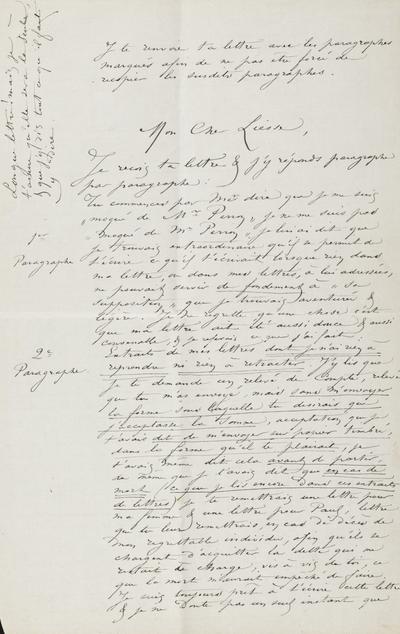 Je te renvoie ta lettre avec les paragraphes
marqués afin de ne pas être forcé de
recopier les susdits paragraphes.
Longue lettre! mais je
t'avoue qu'elle sera la seule
& que j'y dis tout ce qu'il faut
y dire.
Mon Cher Liesse,
Je reçois ta lettre & j'y réponds paragraphe
par paragraphe:
1er
Paragraphe
Tu commences par me dire que je me suis
"moqué de Mr Perron" je ne me suis pas
"moqué de Mr Perron" je lui ai dit que
je trouvais extraordinaire qu'il se permet de
t'écrire ce qu'il t'écrivait lorsque rien dans
ma lettre, ou dans mes lettres, à lui adressées,
ne pouvait servir de fondement à "sa
supposition," que je trouvais aventurée &
légère. Je ne regrette qu'une chose c'est
que ma lettre ait été aussi douce & aussi
convenable, & je referais ce que j'ai fait.
2e
Paragraphe
Extraits de mes lettres dont je n'ai rien à
reprendre ni rien à retracter. J'y lis que
je te demande un relevé de Compte, relevé
que tu m'as envoyé, mais sans m'envoyer
la forme sous laquelle tu desirais que
j'acceptasse la somme, acceptation que je
t'avais dit de m'envoyer sur papier timbré,
dans la forme qu'il te plairait, je
t'avais même dit cela avant de partir,
de même que je t'avais dit que en cas de
mort (ce que je lis encore dans ces extraits
de lettres) je te remettrais une lettre pour
ma femme & une lettre pour Paul, lettre
que tu leur remettrais, en cas de décès de
mon regrettable individu, afin qu'ils se
chargent d'acquitter la dette qui me
restait de charge, vis à vis de toi, ce
que la mort m'aurait empêché de faire.
Je suis toujours prêt à t'écrire cette lettre
& je ne doute pas un seul instant que